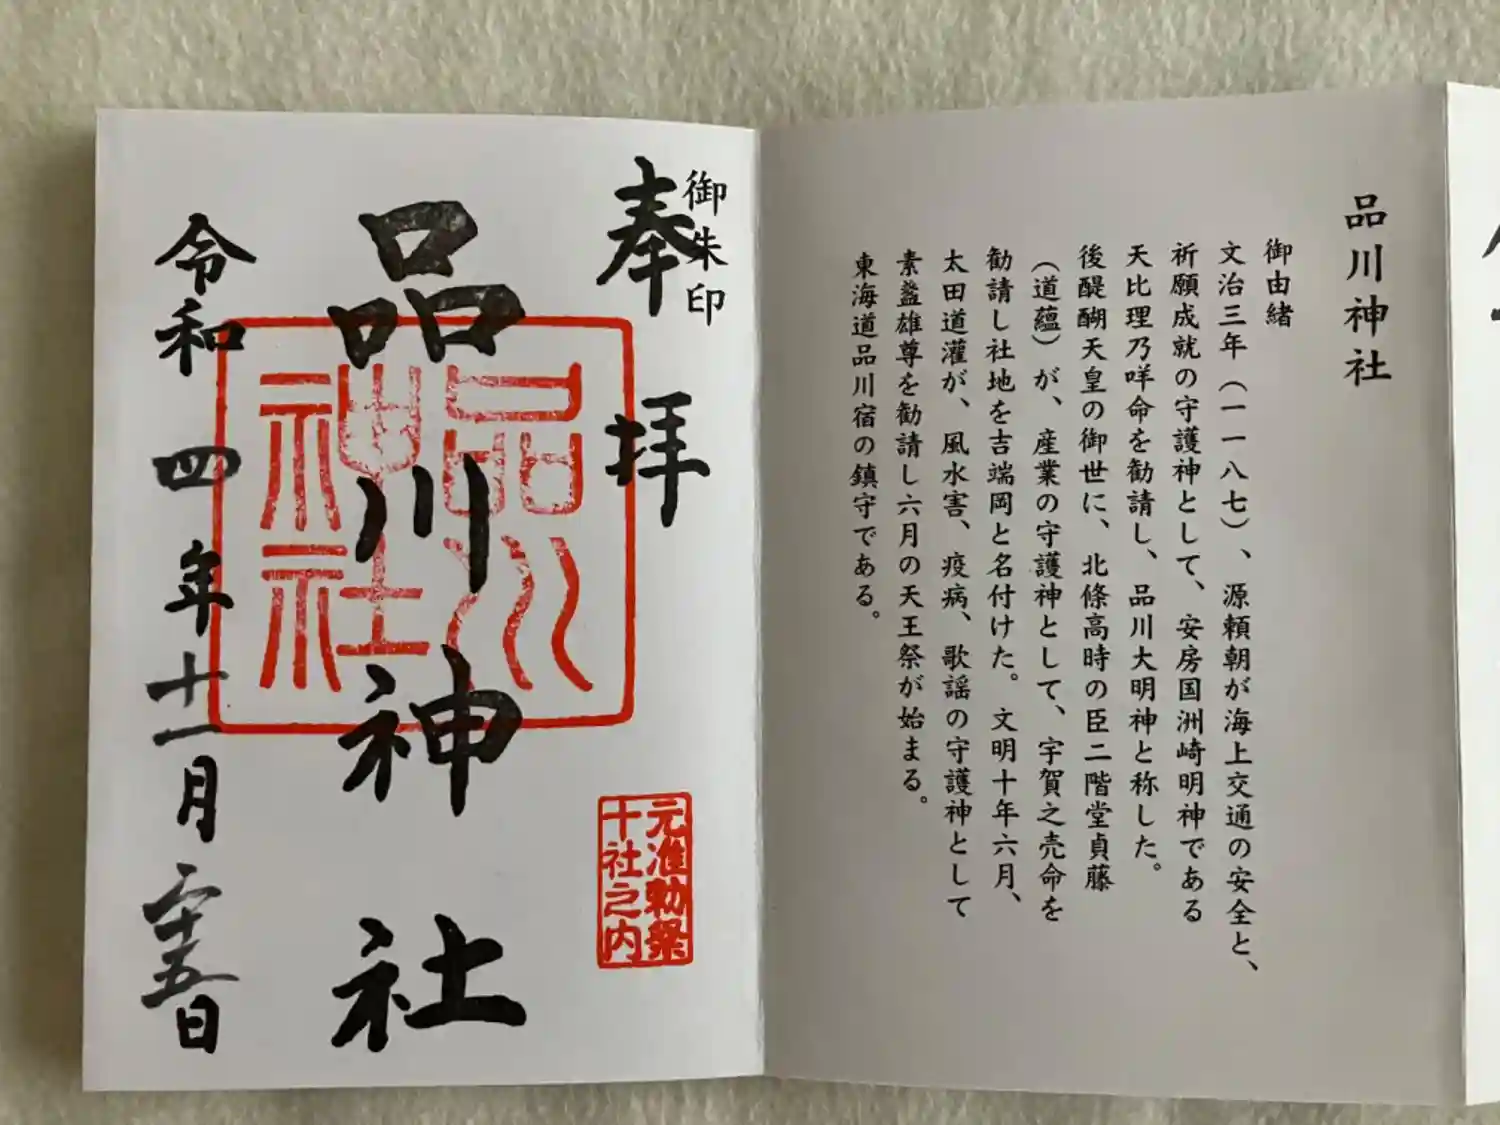 品川神社
御由緒
文治三年（一一八七）、源頼朝が海上交通の安全と、
祈願成就の守護神として、安房国洲崎明神である
天比理乃咩命を勧請し、品川大明神と称した。
後醍醐天皇の御世に、北條高時の臣二階堂貞藤
（道蘊）が、産業の守護神として、宇賀之売命を
勧請し社地を吉端岡と名付けた。文明十年六月、
太田道灌が、風水害、疫病、歌謡の守護神として
素盞雄尊を勧請し六月の天王祭が始まる。
東海道品川宿の鎮守である。
御朱印
奉拝
元准勅祭
十社之内
品川神社
品川
神社
令和四年十一月二十五日